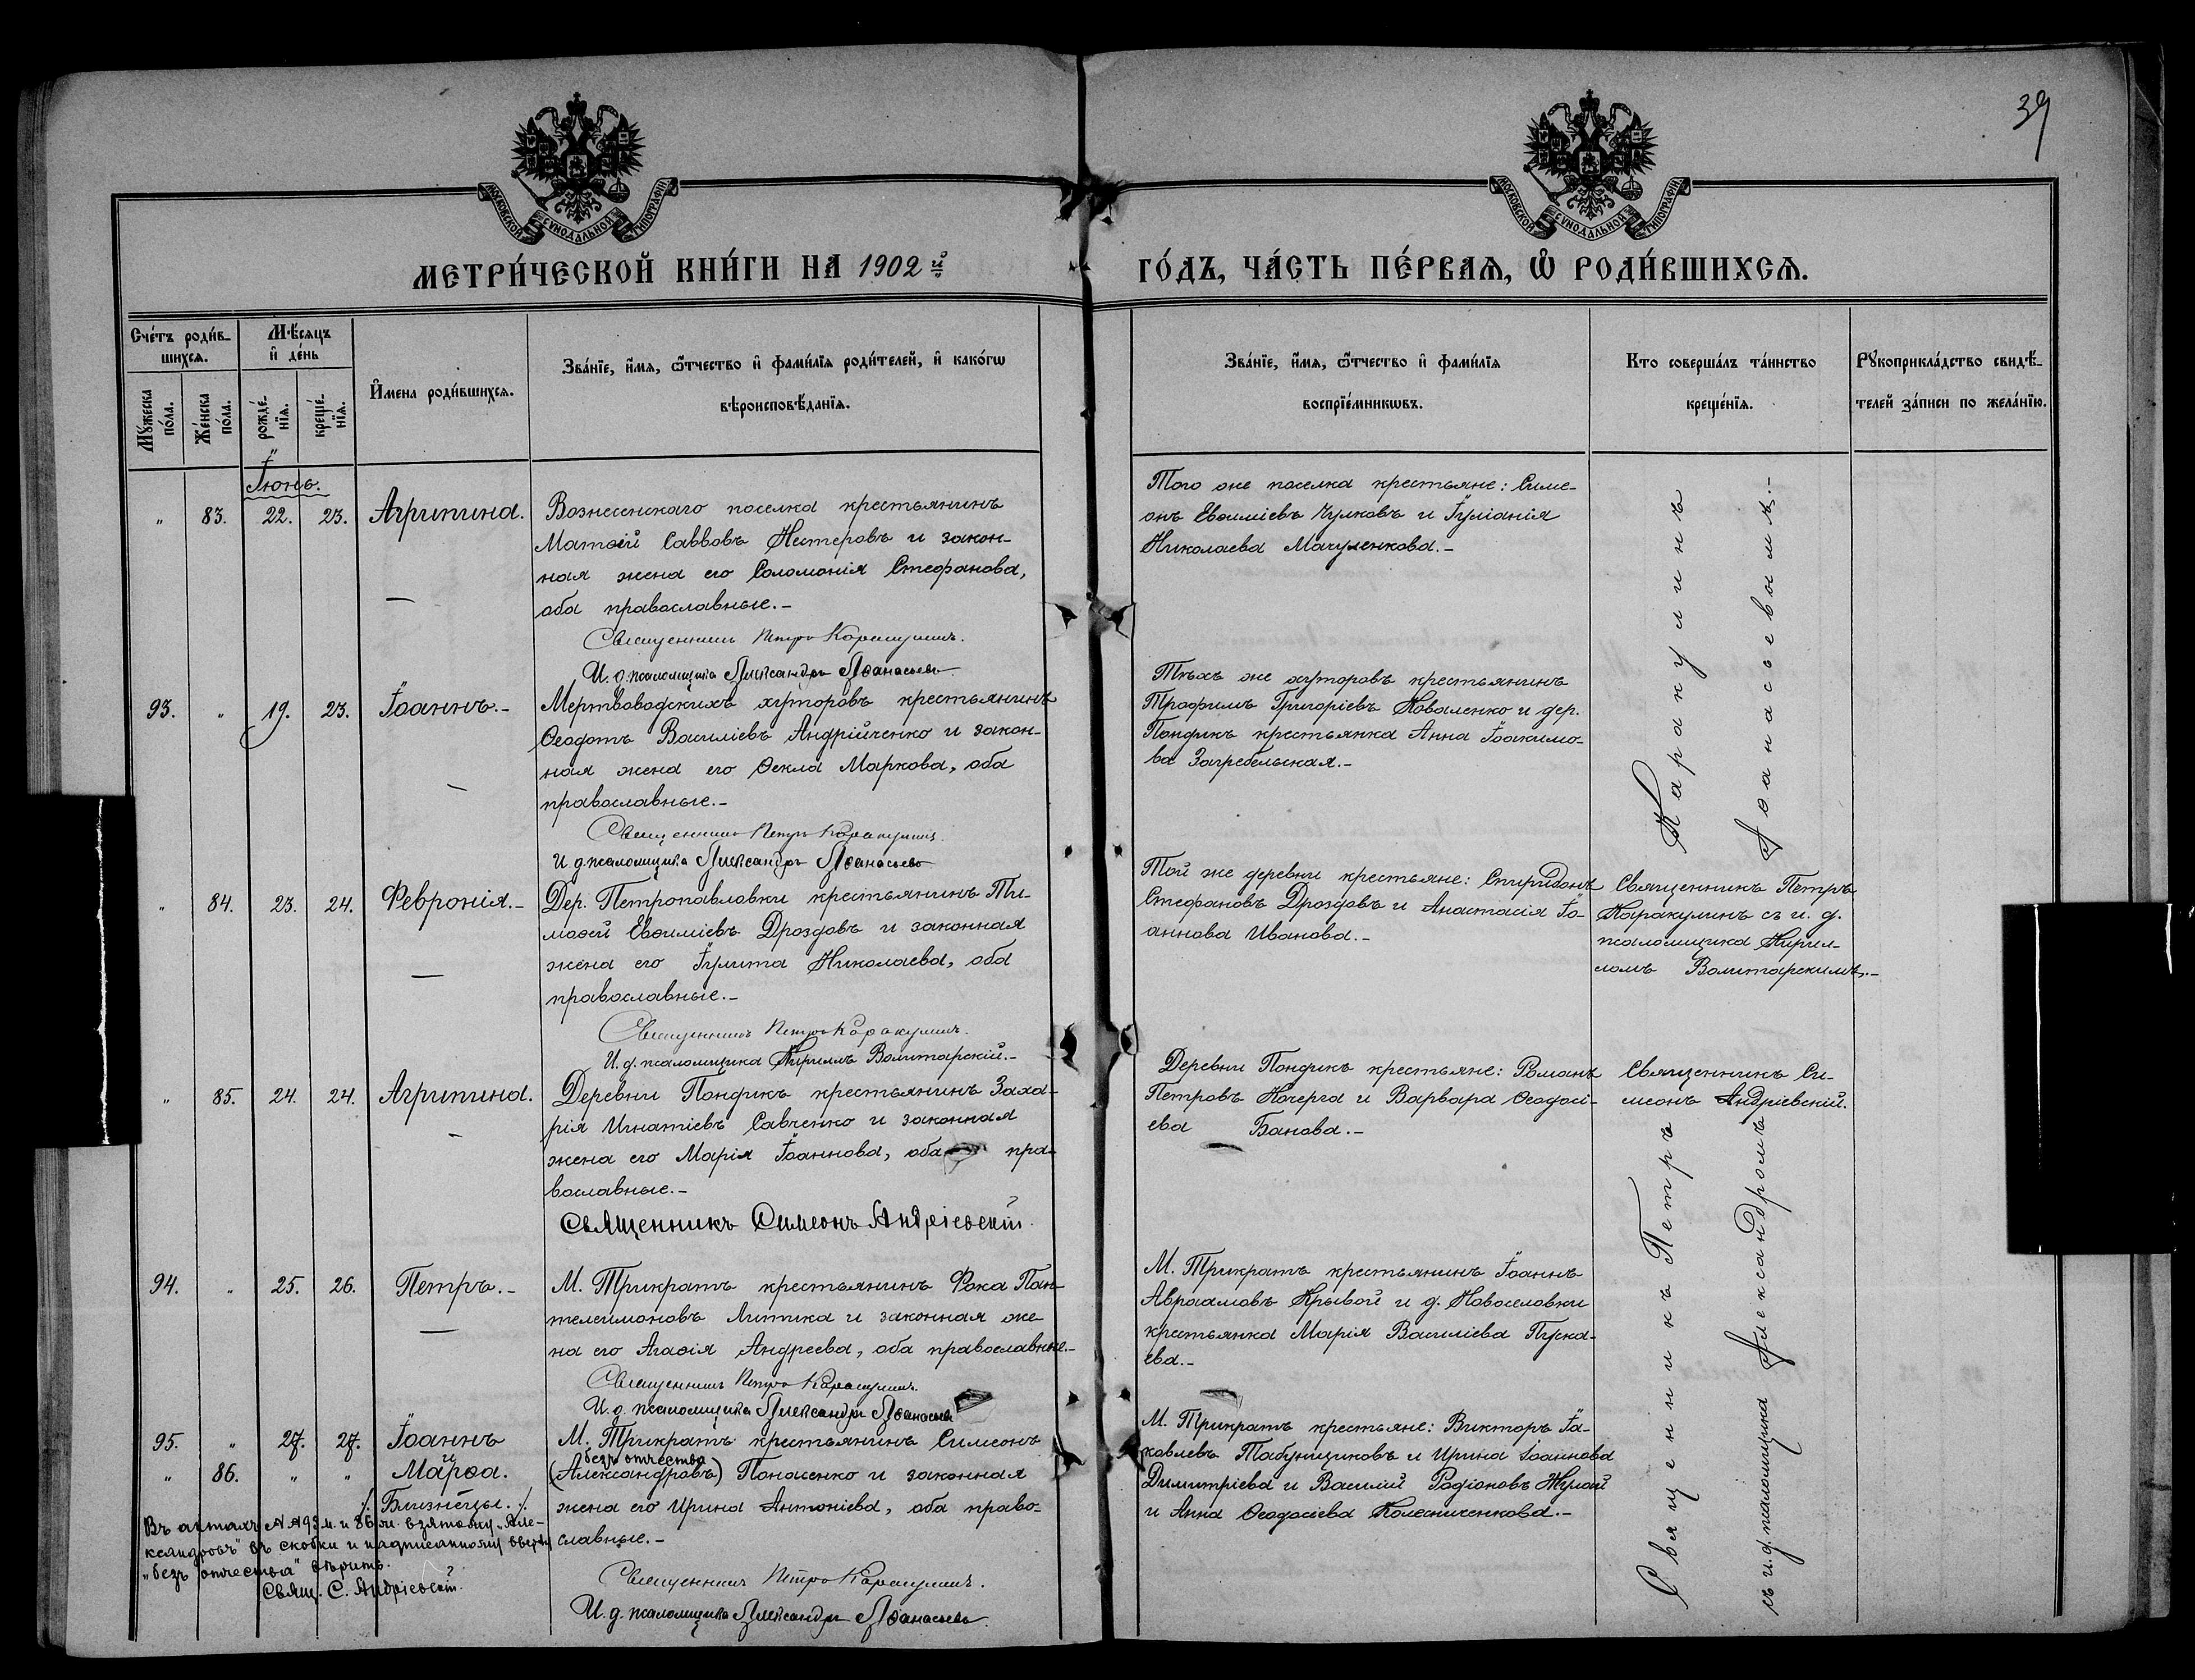 39
МОСКОВСКОЙ СѴНОДАЛЬНОЙ ТИПОГРАФІИ
МОСКОВСКОЙ СѴНОДАЛЬНОЙ ТИПОГРАФІИ
МЕТРИ́ЧЕСКОЙ КНИ́ГИ НА 1902й
ГО́ДЪ, ЧА́СТЬ ПЕ́РВАѦ, Ѡ РОДИ́ВШИХСѦ.
Сче́тъ роди́в-
шихсѧ.
Мꙋ́жеска по́ла.
Же́нска по́ла.
Мѣ́сѧцъ
и҆ де́нь
рожде́-
нїѧ.
креще́-
нїѧ.
И҆мена роди́вшихсѧ.
Зва́нїе, и҆́мѧ, ѻ҆́тчество и҆ фами́лїѧ роди́телей, и҆ како́гѡ
вѣроисповѣ́данїѧ.
Зва́нїе, и҆́мѧ, ѻ҆́тчество и҆ фами́лїѧ
воспрїе́мникѡвъ.
Кто соверша́лъ та́инство
креще́нїѧ.
Рꙋкоприкла́дство свидѣ́-
телей за́писи по жела́нїю.
Іюнь.
" 83. 22. 23. Агрипина.
Вознесенскаго поселка крестьянинъ
Матѳій Саввовъ Нестеровъ и закон-
ная жена его Соломонія Стефанова,
оба православные.-
Священникъ Петръ Каракулинъ.
И. д. псаломщика Александръ Аѳанасьевъ
Того же поселка крестьяне: Симе-
онъ Евѳиміевъ Чулковъ и Іуліанія
Николаева Мачуленкова.-
93. " 19. 23. Іоаннъ.-
Мертвоводскихъ хуторовъ крестьянинъ
Ѳеодотъ Василіевъ Андрійченко и закон-
ная жена его Ѳекла Маркова, оба
православные.-
Священникъ Петръ Каракулинъ.
И. д. псаломщика Александръ Аѳанасьевъ
Тѣхъ же хуторовъ крестьянинъ
Трофимъ Григоріевъ Коваленко и дер.
Пондикъ крестьянка Анна Іоакимо-
ва Загребельская.-
" 84. 23. 24. Февронія.-
Дер. Петропавловки крестьянинъ Ти-
моѳей Евѳиміевъ Дроздовъ и законная
жена его Іулита Николаева, оба
православные.-
Священникъ Петръ Каракулинъ.
И. д. псаломщика Кириллъ Волитарскій.-
Той же деревни крестьяне: Спиридонъ
Стефановъ Дроздовъ и Анастасія Іо-
аннова Иванова.-
Священникъ Петръ
Каракулинъ съ и. д.
псаломщика Кирил-
ломъ Волитарскимъ.-
" 85. 24. 24. Агрипина.
Деревни Пондикъ крестьянинъ Заха-
рія Игнатіевъ Савченко и законная
жена его Марія Іоаннова, оба пра-
вославные.-
Священникъ Симеонъ Андріевскій.
Деревни Пондикъ крестьяне: Романъ
Петровъ Кочерга и Варвара Ѳеодосі-
ева Банова.-
Священникъ Си-
меонъ Андріевскій.
94. " 25. 26. Петръ.-
М. Трикратъ крестьянинъ Фока Пан-
телеимоновъ Литика и законная же-
на его Агаѳія Андреева, оба православные.-
Священникъ Петръ Каракулинъ.
И. д. псаломщика Александръ Аѳанасьевъ
М. Трикратъ крестьянинъ Іоаннъ
Авраамовъ Крывой и д. Новоселовки
крестьянка Марія Василіева Пука-
ева.-
95. " 27. 27. Іоаннъ
" 86. " " Марѳа.
Близнецы.
М. Трикратъ крестьянинъ Симеонъ
безъ отчества
(Александровъ) Понасенко и законная
жена его Ирина Антоніева, оба право-
славные.-
Священникъ Петръ Каракулинъ.
И. д. псаломщика Александръ Аѳанасьевъ.
М. Трикратъ крестьяне: Викторъ Іа-
ковлевъ Табунщиковъ и Ирина Іоаннова
Димитріева и Василій Радіоновъ Жулай
и Анна Ѳеодосіева Колесниченкова.-
Въ актахъ №№ 93 м. и 86 ж. взятому „Але-
ксандровъ" въ скобки и надписанному вверху
„безъ отчества" вѣрить.
Свящ. С. Андріевскій.
Священникъ Петръ Каракулинъ
съ и. д. псаломщика Александромъ Аѳанасьевымъ.-